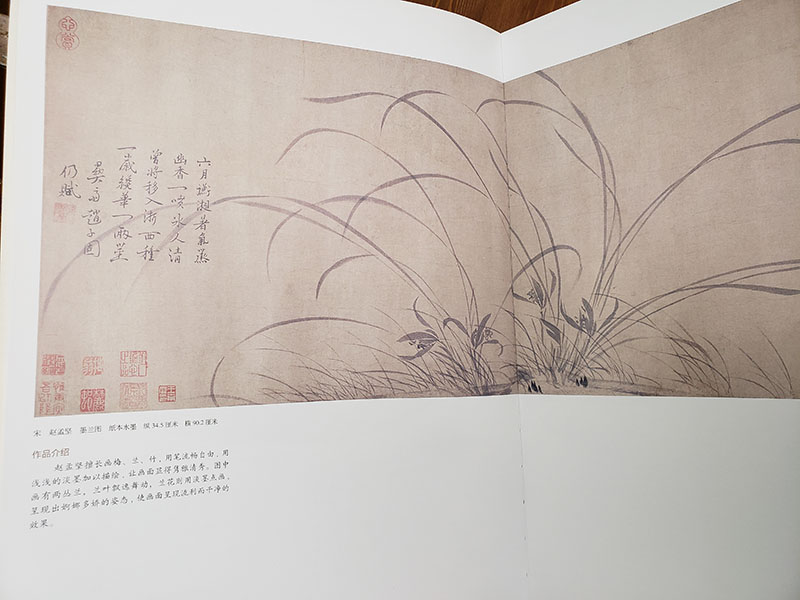 六月衡湘暑氣蒸
幽香一噴冰人清
曾將移入浙西種
一歲發華一兩莖
彝齋趙子固
仍賦
宋 赵孟坚 墨兰图 纸本水墨 纵34.5厘米 横90.2厘米
作品介绍
赵孟坚擅长画梅、兰、竹，用笔流畅自由，用
浅浅的淡墨加以描绘，让画面显得隽雅清秀。图中
画有两丛兰，兰叶飘逸舞动，兰花则用淡墨点画，
呈现出婀娜多娇的姿态，使画面呈现流利而干净的
效果。